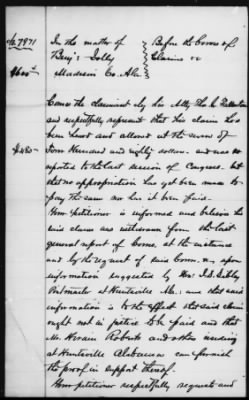 No 7971
In the matter of
Benj. Jolly
Madison Co. Ala
Before the Comrs of
Claims &c
Comes the claimant by his Atty Thos
and respectfully represents that his claim has
been heard and allowed at the sum of
Four Hundred and eighty dollars and was re
$480
ported to the last session of Congress but
that no appropriation has yet been made to
pay the same nor has it been paid.
Your petitioner is informed and believes his
said claim was withdrawn from the last
general report of Comrs, at the instance
and by the request of said Comrs, upon
information suggested by Mr. J. D. Sibley
Postmaster at Huntsville Ala: and that said
information is to the effect that said claim
ought not in justice to be paid and that
Mr. Hiram Roberts and others residing
at Huntsville Alabama can furnish
the proof in support thereof.
Your petitioner respectfully requests and